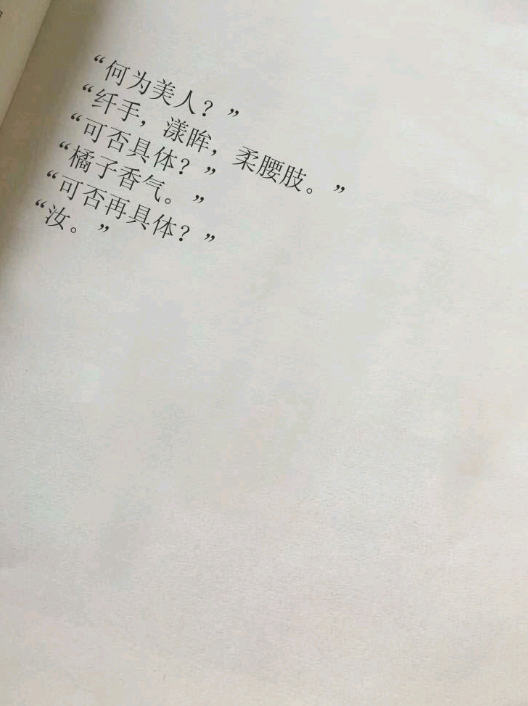 “何为美人？”
“纤手，漾眸，柔腰肢。”
“可否具体？”
“橘子香气。”
“可否再具体？”
“汝。”